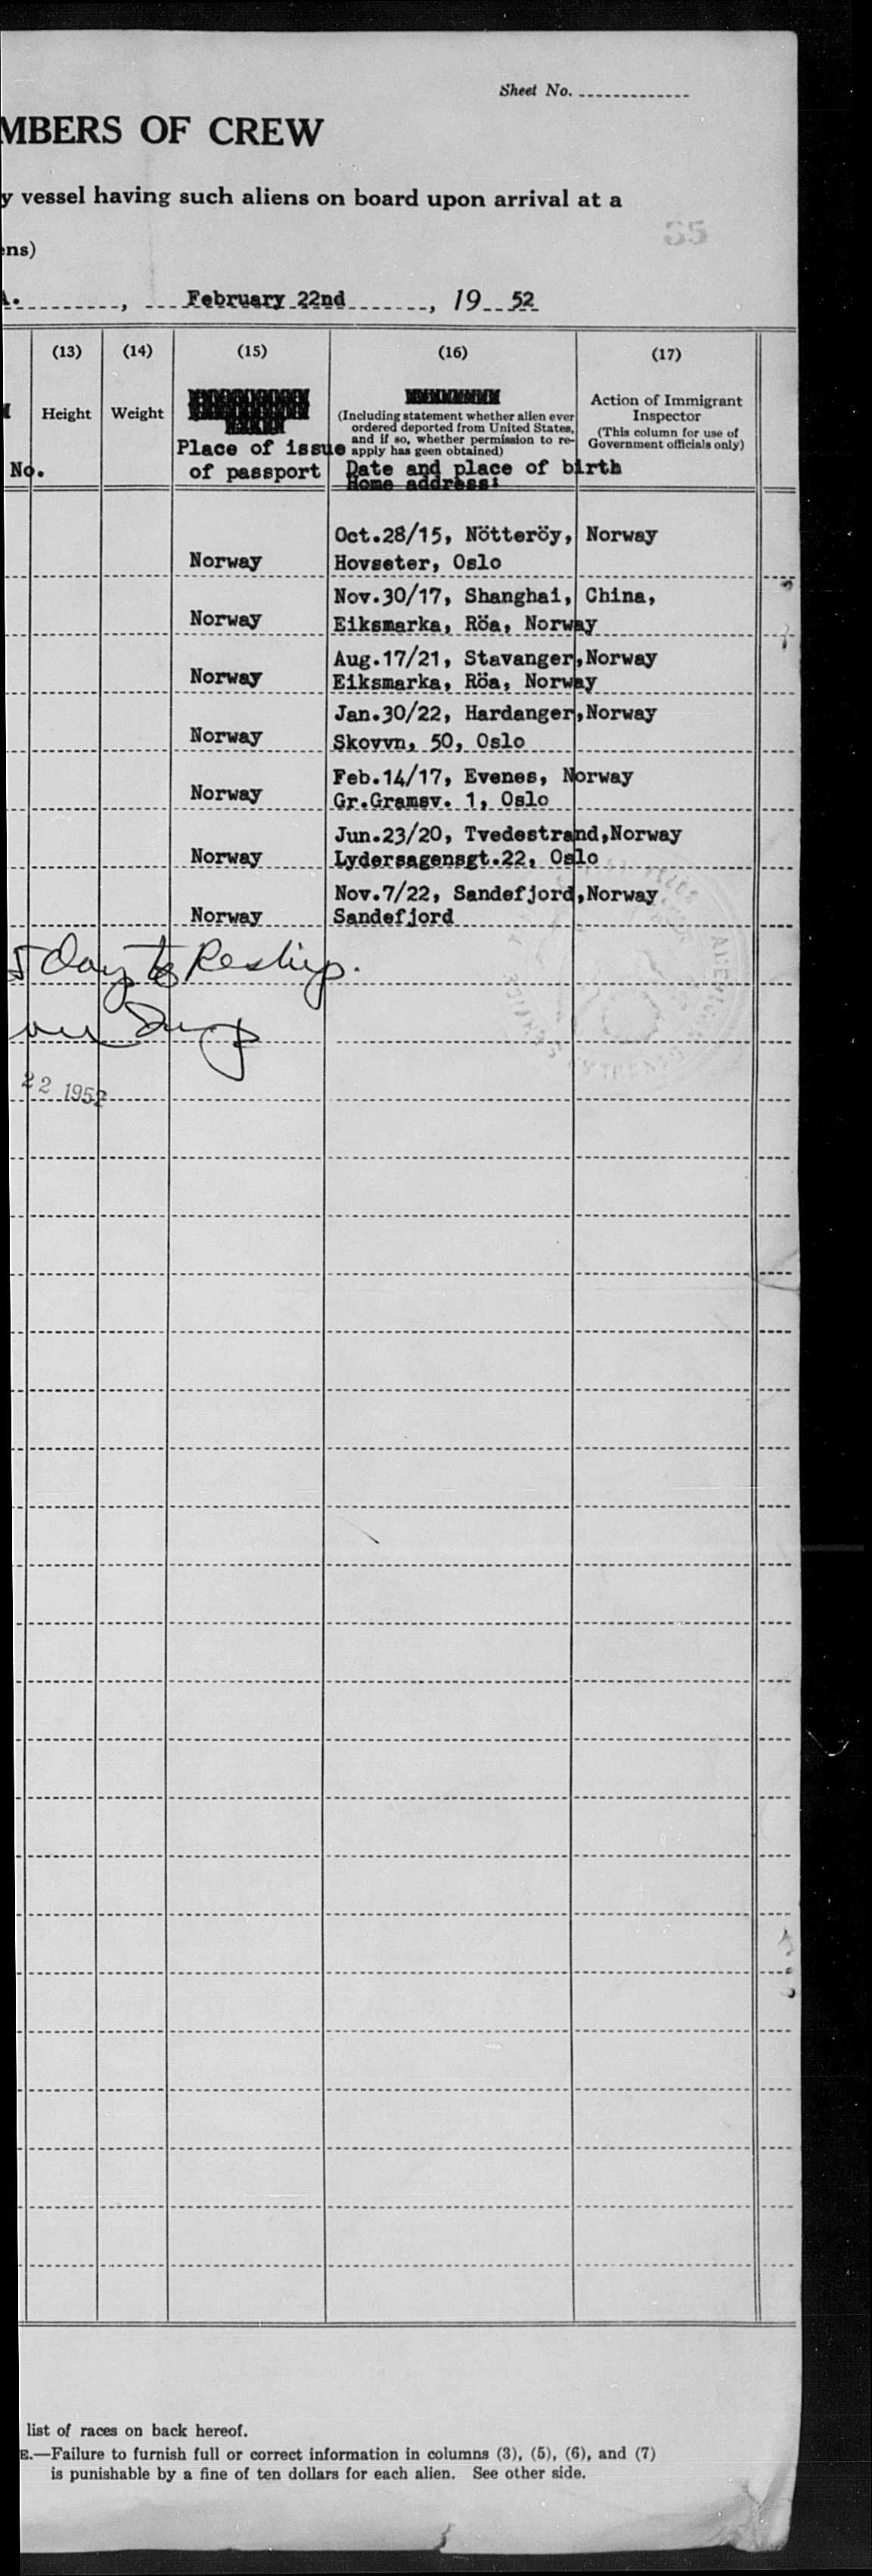 Sheet No.
MBERS OF CREW
y vessel having such aliens on board upon arrival at a
35
ens)
A. , February 22nd , 19 52
(13) (14) (15) (16) (17)
Height Weight
(Including statement whether alien ever
ordered deported from United States,
and if so, whether permission to re-
apply has geen obtained)
Action of Immigrant
Inspector
(This column for use of
Government officials only)
No.
Place of issue
of passport
Date and place of birth
Home address:
Oct.28/15, Nötteröy, Norway
Norway Hovseter, Oslo
Nov.30/17, Shanghai, China,
Norway Eiksmarka, Röa, Norway
Aug.17/21, Stavanger,Norway
Norway Eiksmarka, Röa, Norway
Jan.30/22, Hardanger,Norway
Norway Skovvn, 50, Oslo
Feb.14/17, Evenes, Norway
Norway Gr.Gramsv. 1, Oslo
Jun.23/20, Tvedestrand,Norway
Norway Lydersagensgt.22, Oslo
Nov.7/22, Sandefjord,Norway
Norway Sandefjord
days to Reship.
22 1952
list of races on back hereof.
E.—Failure to furnish full or correct information in columns (3), (5), (6), and (7)
is punishable by a fine of ten dollars for each alien. See other side.